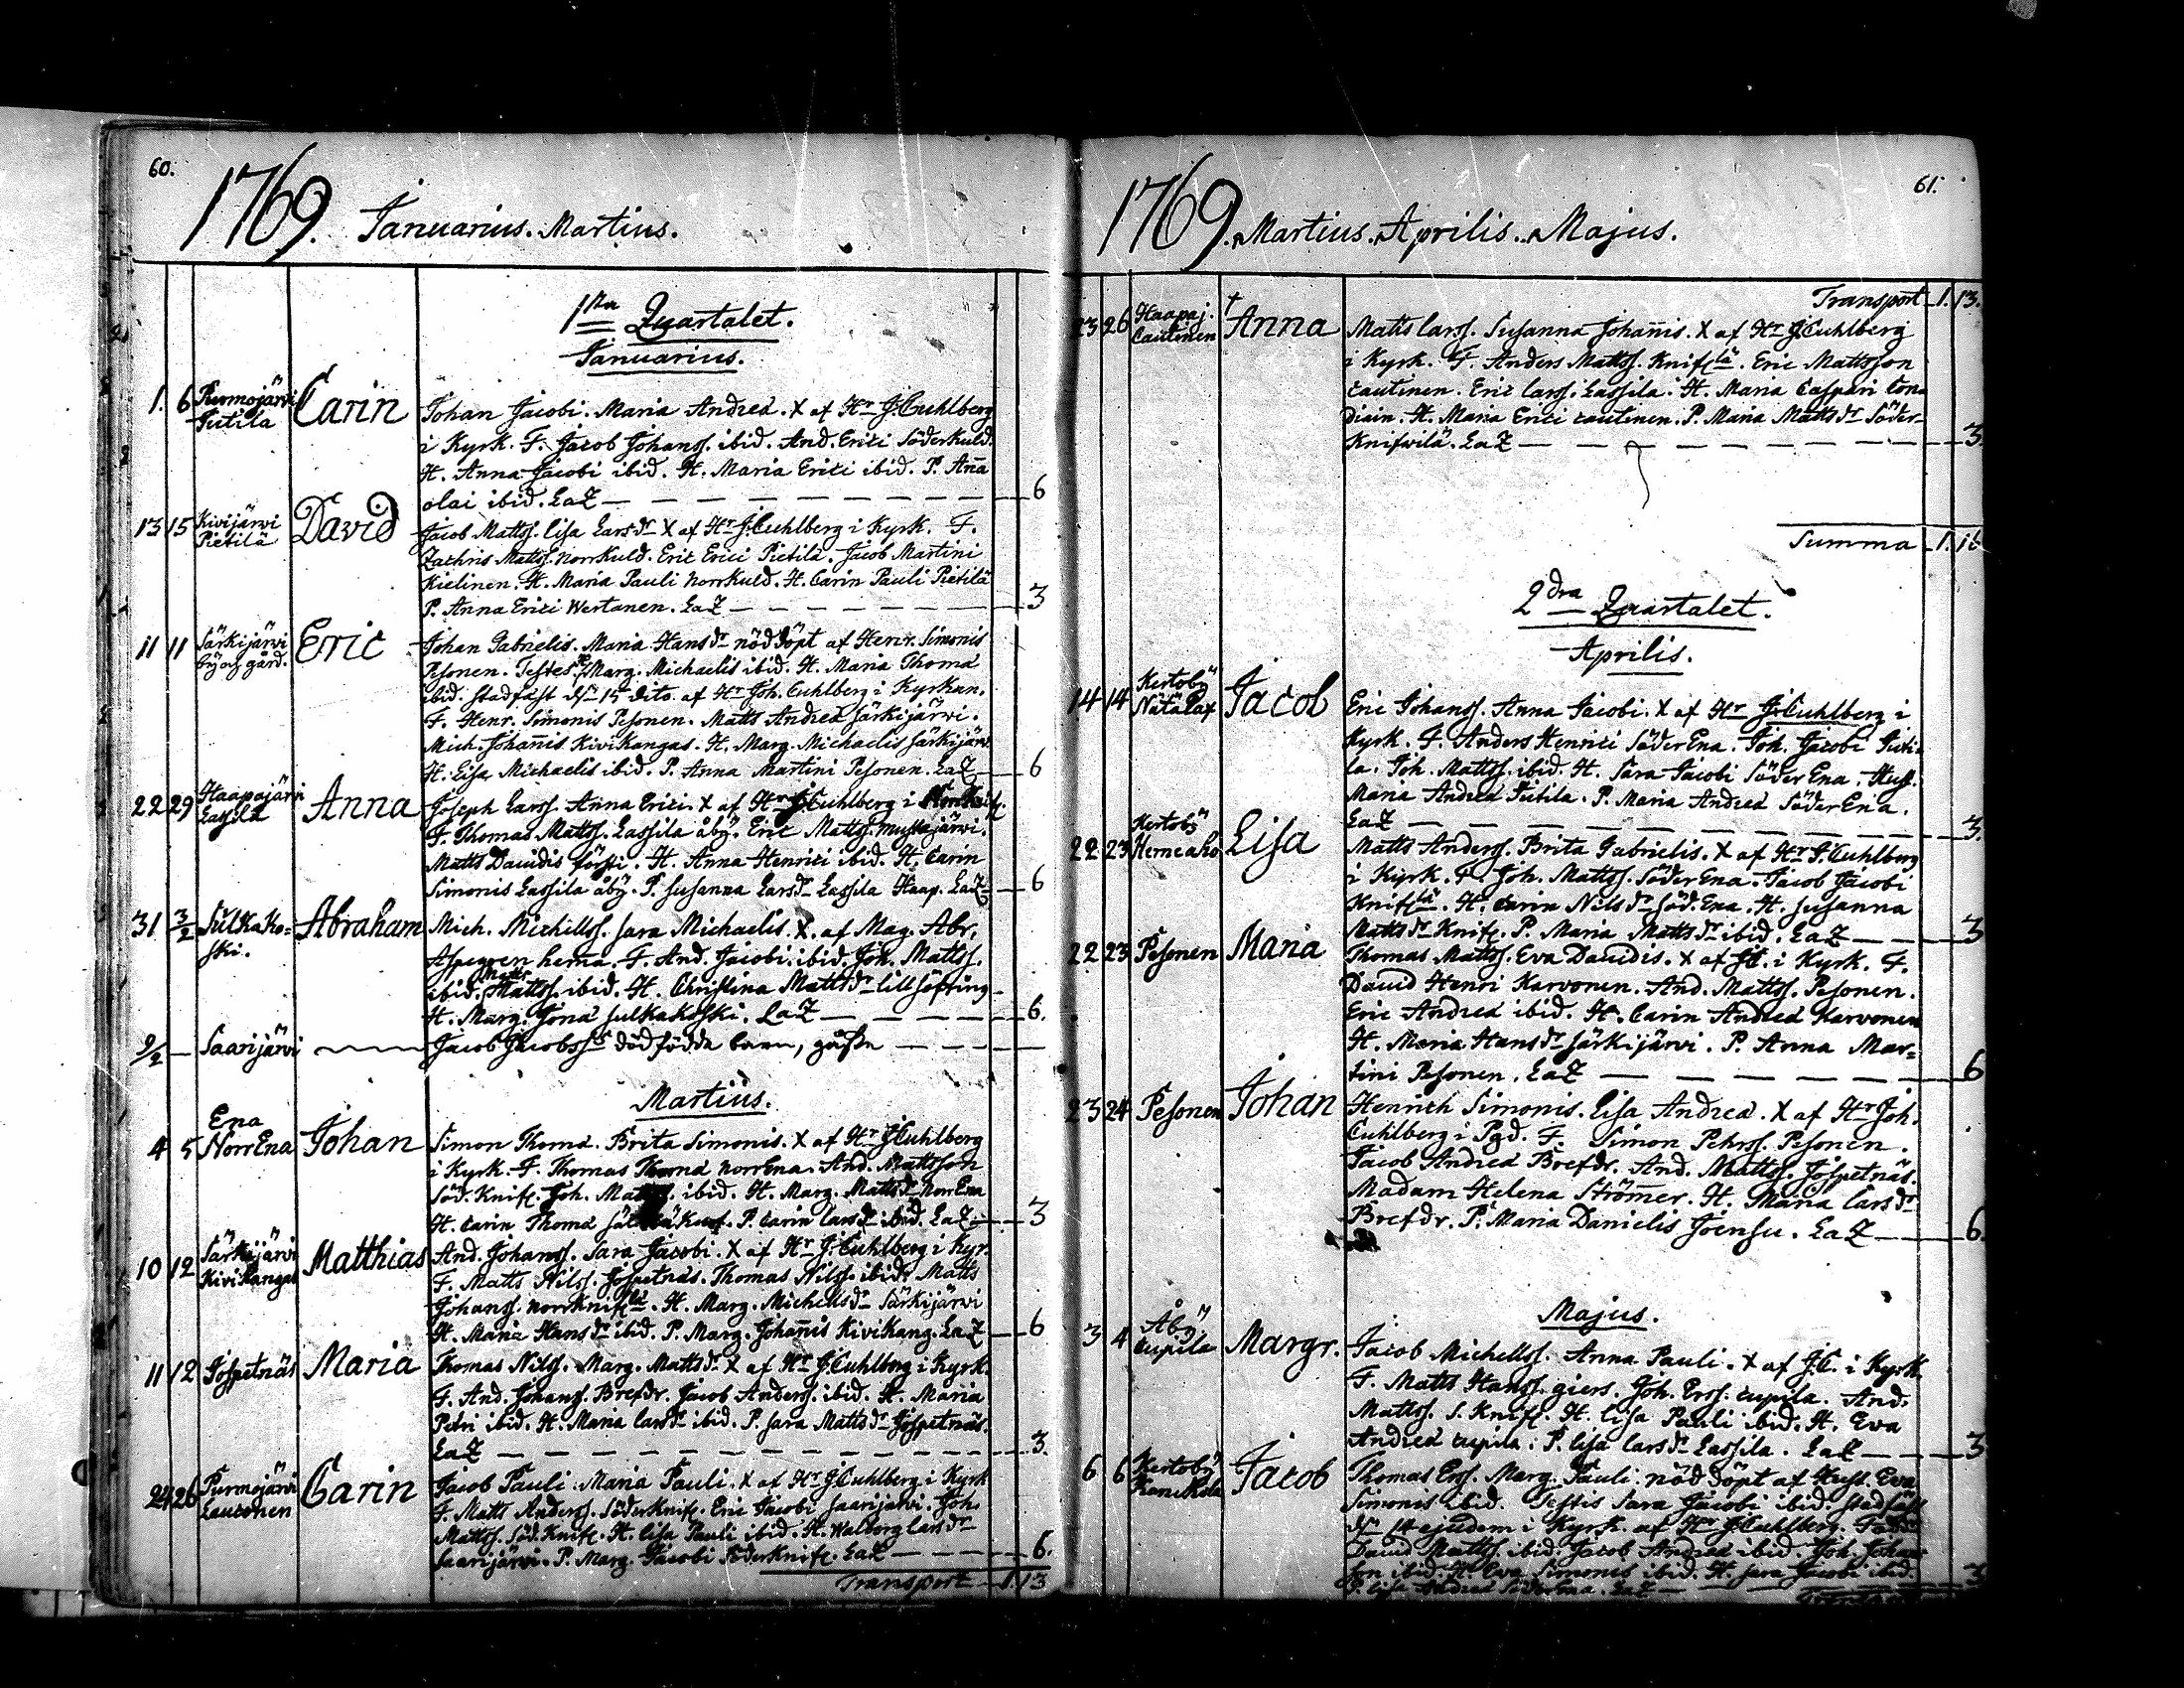 60.
1769. Januarius. Martius.
1sta Quartalet.
Januarius.
1. 6 Purmojärvi Carin Johan Jacobi. Maria Andreæ. X af Hr J. Cuhlberg
Jutila i Kyrk. F. Jacob Johanss. ibid. And. Erici Söderkuld.
H. Anna Jacobi ibid. H. Maria Erici ibid. P. Anna
olai ibid. LaZ — 6
13 15 Kivijärvi David Jacob Mattss. Lisa Larsdr X af Hr J. Cuhlberg i Kyrk. F.
Pietilä Zachris Mattss. Norrkuld. Eric Erici Pietilä. Jacob Martini
Kielinen. H. Maria Pauli Norrkuld. H. Carin Pauli Pietilä
P. Anna Erici Wertanen. LaZ — 3
11 11 Särkijärvi Eric Johan Gabrielis. Maria Hansdr nöddöpt af Henr. Simonis
by och gård. Pesonen. Testes Marg. Michaelis ibid. H. Maria Thomæ
ibid. stadfäst dn 15 dito. af Hr Joh. Cuhlberg i Kyrkan.
F. Henr. Simonis Pesonen. Matts Andreæ Särkijärvi.
Mich. Johannis Kivikangas. H. Marg. Michaelis Särkijärv.
H. Lisa Michaelis ibid. P. Anna Martini Pesonen. LaZ — 6
22 29 Haapajärvi Anna Joseph Larss. Anna Erici. X af Hr J. Cuhlberg i
Lassila F. Thomas Mattss. Lassila åby. Eric Mattss. mustajärvi.
Matts Davidis försti. H. Anna Henrici ibid. H. Carin
Simonis Lassila åby. P. Susanna Larsdr Lassila Haap. LaZ — 6
31 3/2 Sulkako- Abraham Mich. Michellss. Sara Michaelis. X. af Mag. Abr.
ski. Aspegren hema. F. And. Jacobi. ibid. Joh. Mattss.
ibid. Matts Mattss. ibid. H. Christina Mattsdr
H. Marg. Jonæ Sulkakoski. LaZ — 6.
9/2 — Saarijärvi Jacob Jacobss dödfödda barn, gosse —
Martius.
Ena
4 5 NorrEna Johan Simon Thomæ. Brita Simonis. X af Hr J. Cuhlberg
i Kyrk. F. Thomas Thomæ norrEna. And. Mattsson
Söd. Knif. Joh. ibid. H. Marg. Mattsdr NorrEna
H. Carin Thomæ P. Carin Larsdr ibid. LaZ — 3
10 12 Särkijärvi Matthias And. Johanss. Sara Jacobi. X af Hr J. Cuhlberg i Kyr.
Kivikangas F. Matts Nilss. Jöspetnäs. Thomas Nilss. ibid. Matts
Johanss. norrKnif. H. Marg. Michelsdr Särkijärvi
H. Maria Hansdr ibid. P. Marg. Johannis Kivikang. LaZ — 6
11 12 Jöspetnäs Maria Thomas Nilss. Marg. Mattsdr X af Hr J. Cuhlberg i Kyrk.
F. And. Johanss. Brefdr. Jacob Anderss. ibid. H. Maria
Petri ibid. H. Maria Larsdr ibid. P. Sara Mattsdr Jöspetnäs.
LaZ — 3.
24 26 Purmojärvi Carin Jacob Pauli. Maria Pauli. X af Hr J. Cuhlberg i Kyrk
Lautonen F. Matts Anderss. Söderknif. Eric Jacobi Saarijärvi. Joh.
Mattss. Söd. Knif. H. Lisa Pauli ibid. H. Walborg Larsdr
Saarijärvi. P. Marg. Jacobi Söderknif. LaZ — 6.
Transport 1.13
61.
1769. Martius. Aprilis. Majus.
Transport 1.13.
23 26 Haapaj. Anna Matts Larss. Susanna Johannis. X af Hr J. Cuhlberg
Cautinen i Kyrk. F. Anders Mattss. Knif. Eric Mattsson
Cautinen. Eric Larss. Lassila. H. Maria Caspari Con-
diain. H. Maria Erici Cautinen. P. Maria Mattsdr Söder-
Knifvilä. LaZ — 3
Summa 1.16
2dra Quartalet.
Aprilis.
14 14 Kertoby Jacob Eric Johanss. Anna Jacobi. X af Hr J. Cuhlberg i
Kyrk. F. Anders Henrici Söder Ena. Joh. Jacobi Juti-
la. Joh. Mattss. ibid. H. Sara Jacobi Söder Ena. Hust.
Maria Andreæ Jutila. P. Maria Andreæ Söder Ena.
LaZ — 3.
22 23 Kertoby Lisa Matts Anderss. Brita Gabrielis. X af Hr J. Cuhlberg
Herneaho i Kyrk. F. Joh. Mattss. Söder Ena. Jacob Jacobi
Knif. H. Carin Nilsdr Söd. Ena. H. Susanna
Mattsdr Knif. P. Maria Mattsdr ibid. LaZ — 3
22 23 Pesonen Maria Thomas Mattss. Eva Davidis. X af J.C. i Kyrk. F.
David Henri Karvonen. And. Mattss. Pesonen.
Eric Andreæ ibid. H. Carin Andreæ Karvonen
H. Maria Hansdr Särkijärvi. P. Anna Mar-
tini Pesonen. LaZ — 6
23 24 Pesonen Johan Henrich Simonis. Lisa Andreæ. X af Hr Joh.
Cuhlberg i Pgd. F. Simon Pehrss. Pesonen.
Jacob Andreæ Brefdr. And. Mattss. Jöspetnäs.
Madam Helena Strömer. H. Maria Larsdr
Brefdr. P. Maria Danielis Joensu. LaZ — 6
Majus.
3 4 Åby Margr. Jacob Michellss. Anna Pauli. X af J.C. i Kyrk.
Cupila F. Matts Hanss. giers. Joh. Erss. Cupila. And.
Mattss. S. Knif. H. Lisa Pauli ibid. H. Eva
Andreæ Cupila. P. Lisa Larsdr Lassila. LaZ — 3
6 6 Kertoby Jacob Thomas Erss. Marg. Pauli. nöddöpt af Hust. Eva
Simonis ibid. Testis Sara Jacobi ibid. stadfäst
dn 14 ejusdem i Kyrk. af Hr J. Cuhlberg.
David Mattss. ibid. Jacob Andreæ ibid. Joh. Johans-
son ibid. H. Eva Simonis ibid. H. Sara Jacobi ibid.
P. Lisa Andreæ Söder Ena. LaZ — 3